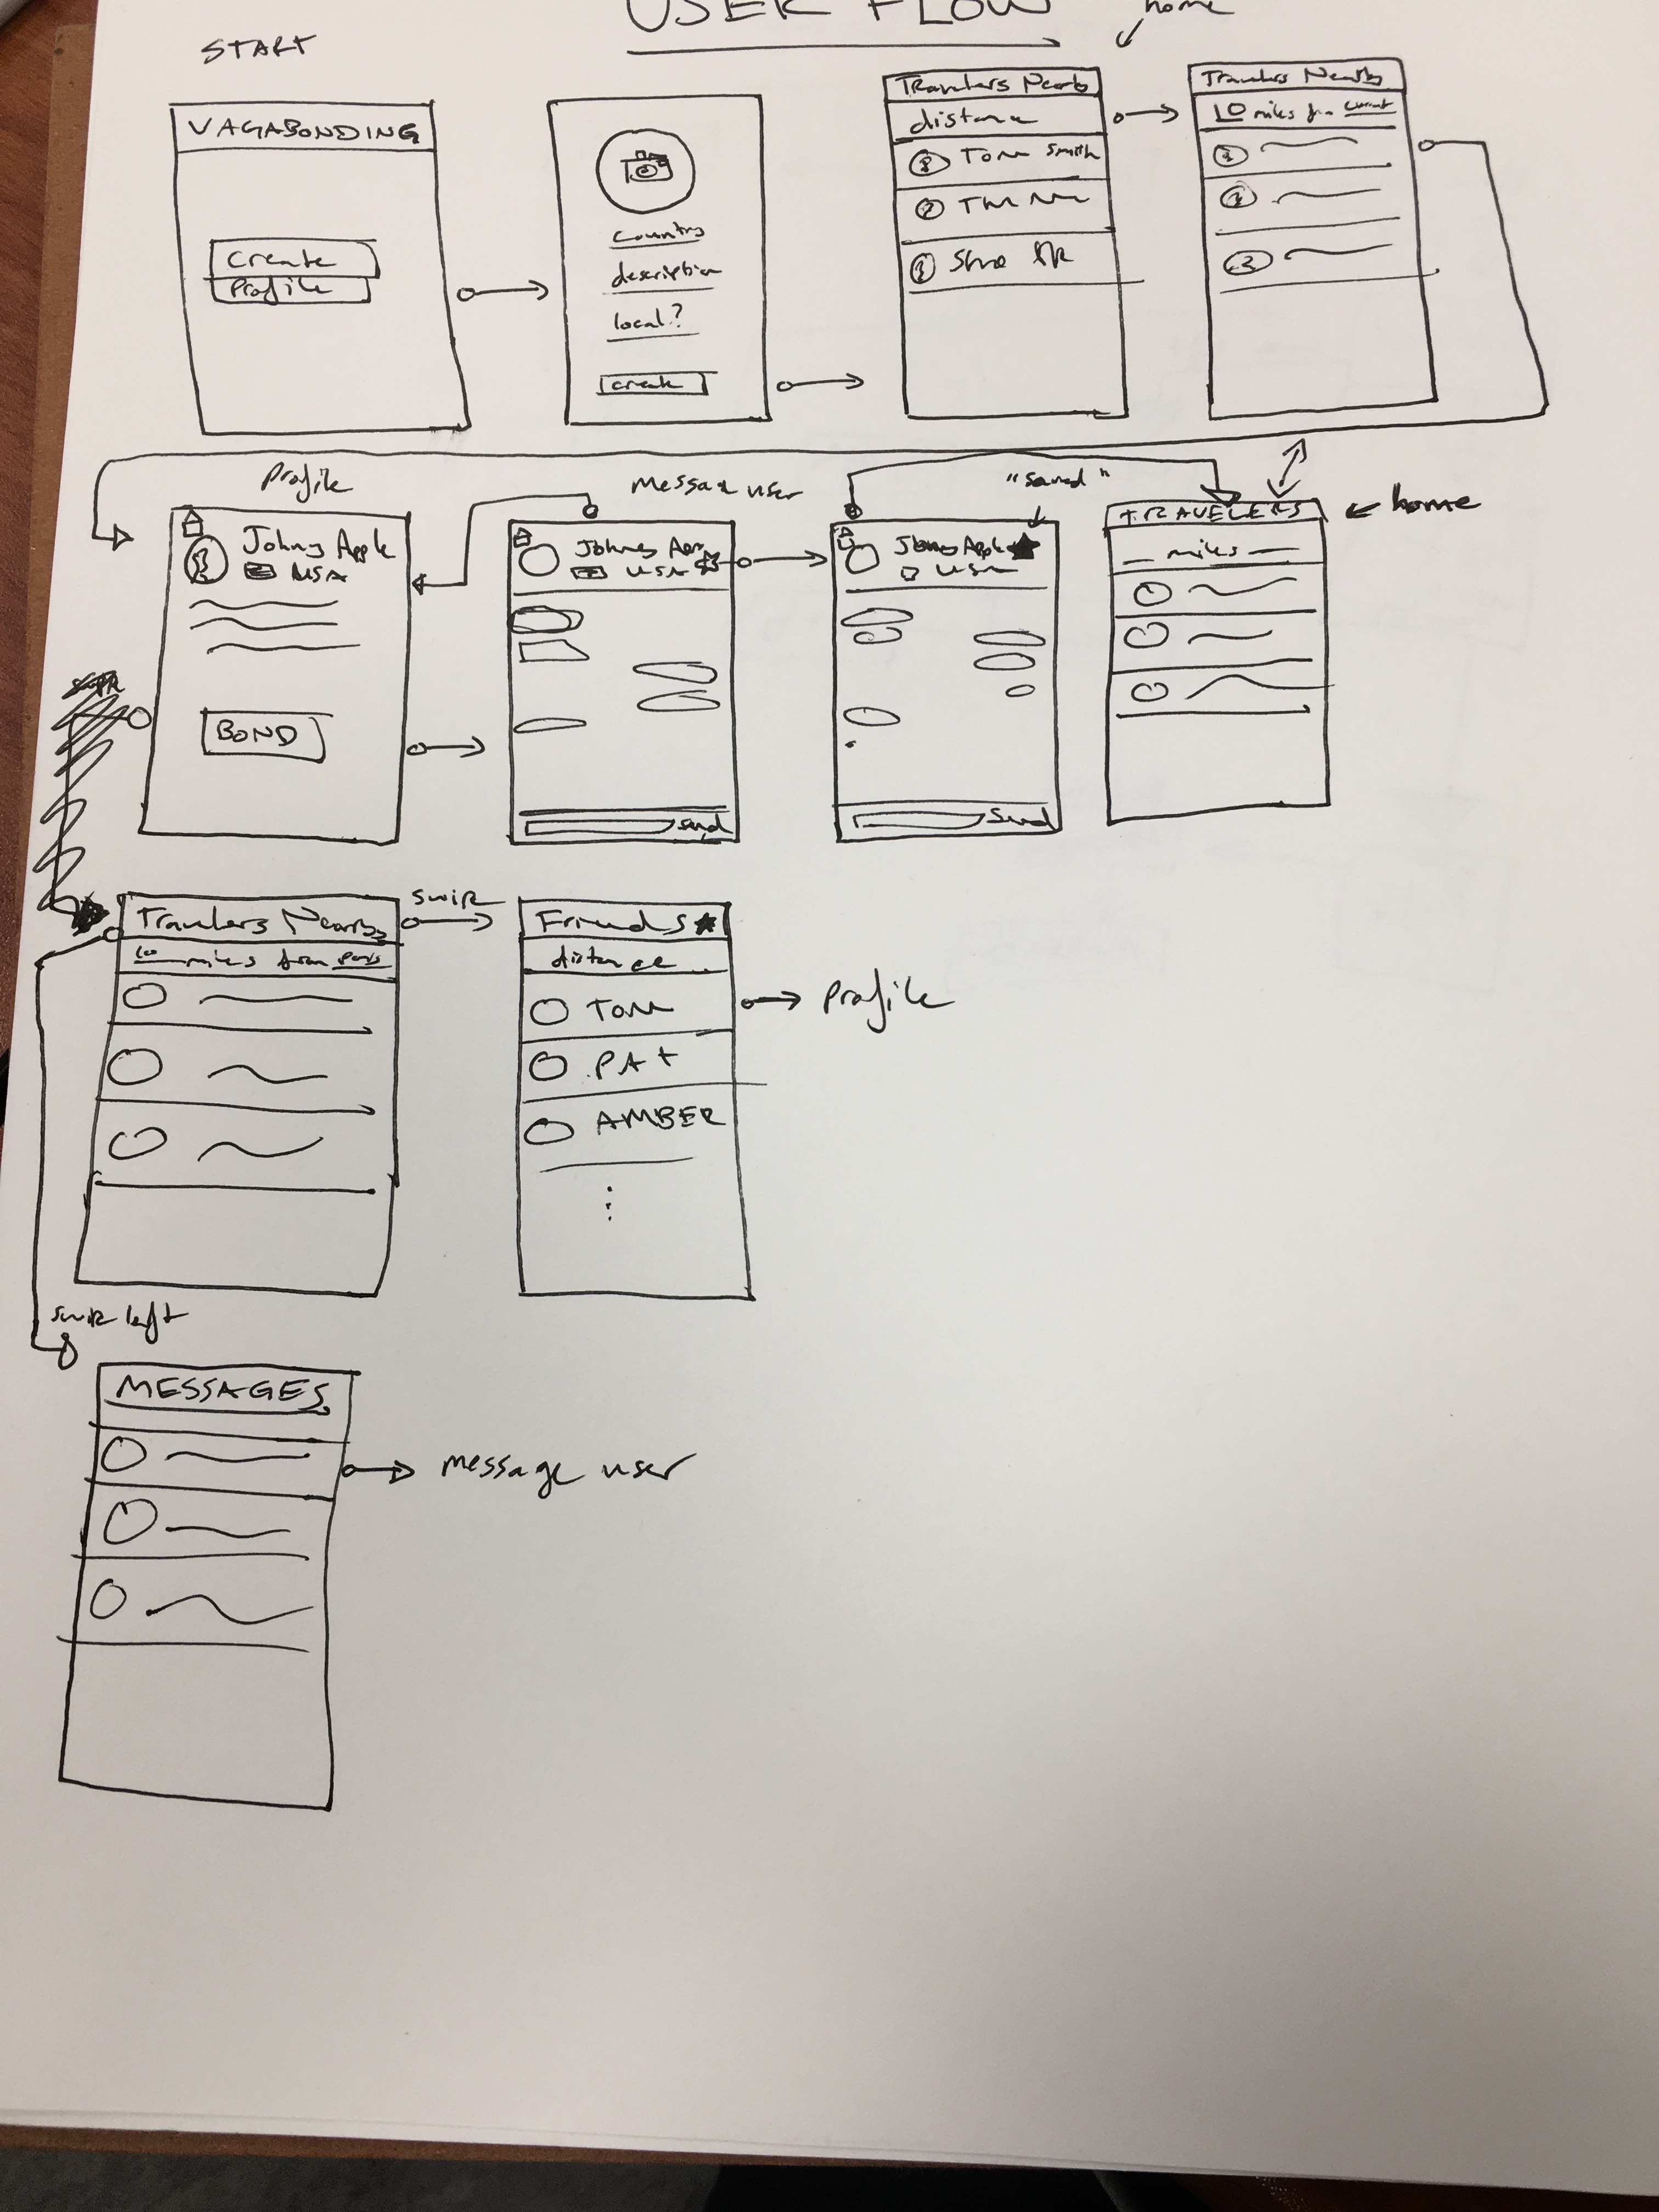 USER FLOW
home
START
VAGABONDING
Create
Profile
country
description
local?
create
Travelers Nearby
distance
Tom Smith
Travelers Nearby
10 miles from current
Profile
Johny Apple
USA
BOND
message user
Johny
USA
Send
"saved"
Johny Apple
USA
Send
TRAVELERS
miles
home
Travelers Nearby
10 miles from Paris
swipe
Friends
distance
TOM
PAT
AMBER
profile
swipe left
MESSAGES
message user